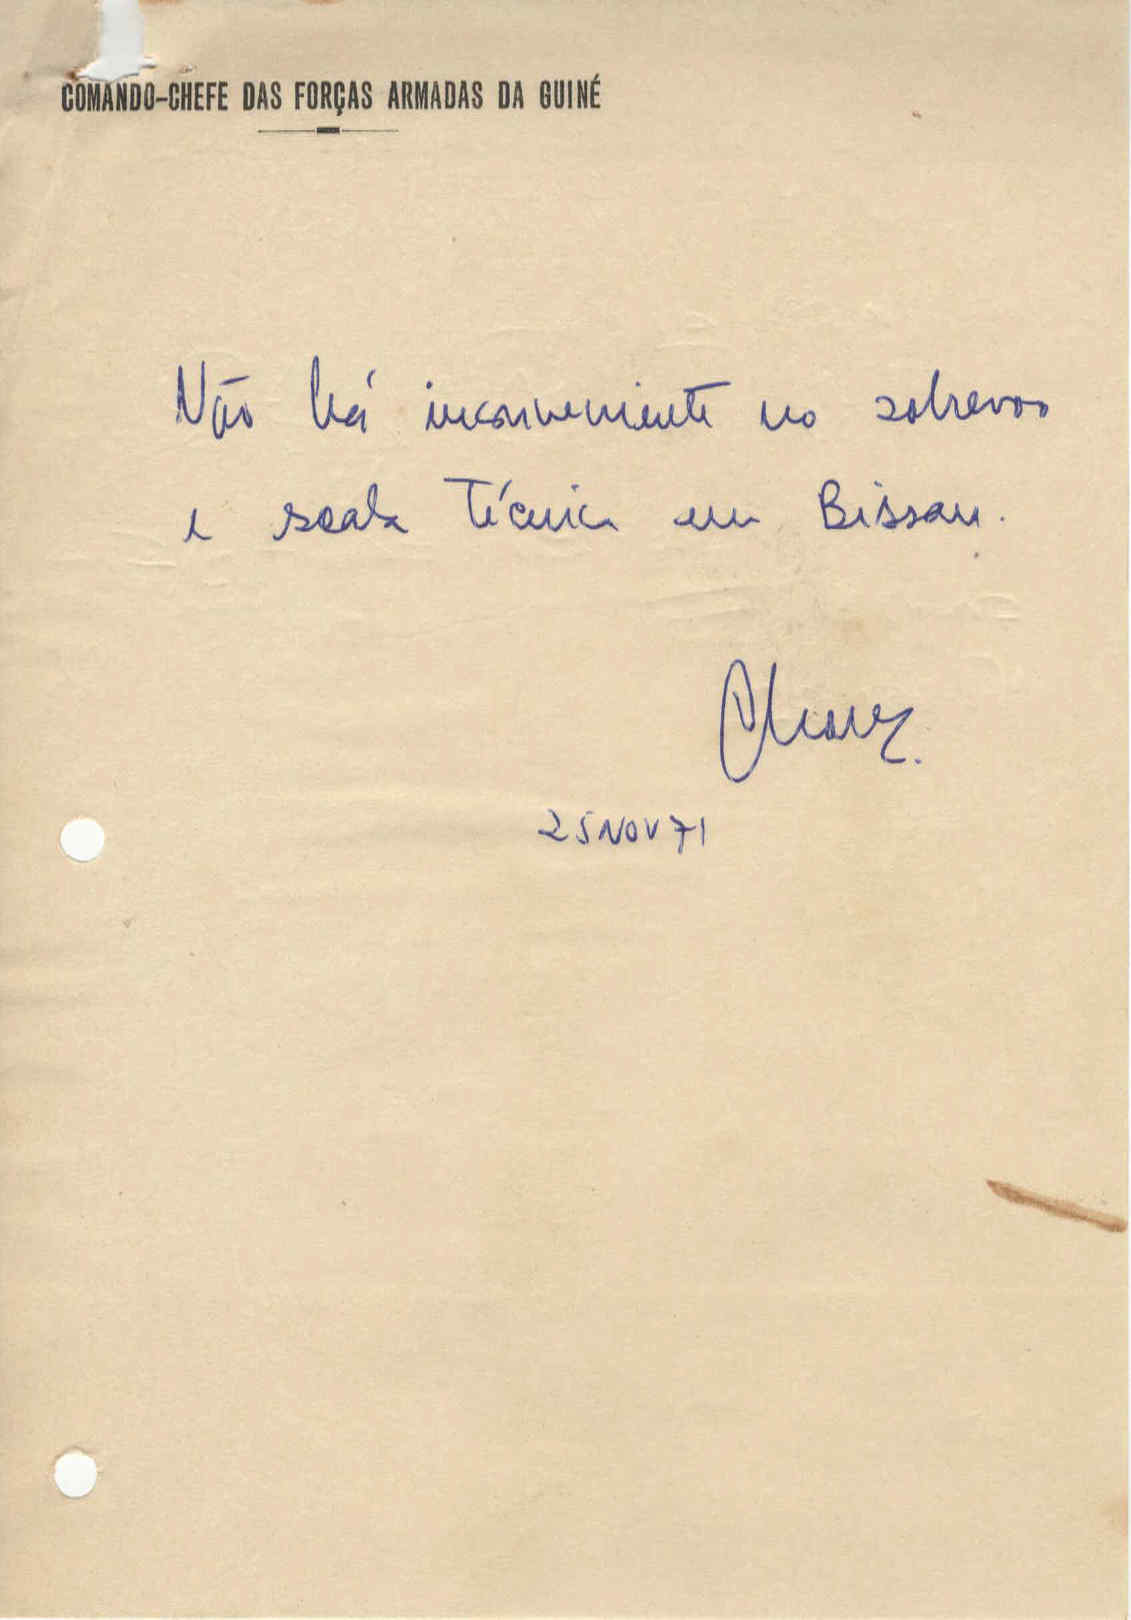 COMANDO-CHEFE DAS FORÇAS ARMADAS DA GUINÉ
Não há inconveniente no sobrevoo
e scala técnica em Bissau.
25 NOV 71